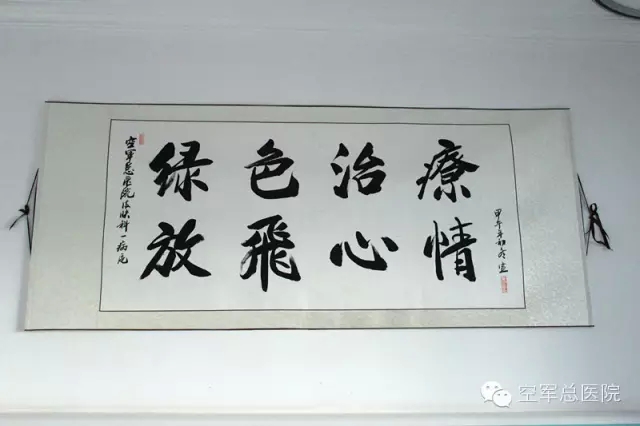 空军总医院皮肤科一病区
绿色治療
放飛心情
甲午年初冬
空军总医院